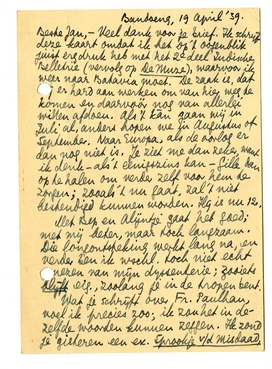 Bandoeng, 19 April '39.
Beste Jan, – Veel dank voor je brief. Ik schrijf
deze kaart omdat ik het op 't oogenblik
juist erg druk heb met het 2e deel Indische
Belletrie (vervolg op de Muze), waarvoor ik
weer naar Batavia moet. De zaak is, dat
ik er hard aan werken om van hier weg te
komen en daarvoor nog van allerlei
willen afdoen. Als 't kan gaan wij in
Juli al, anders hopen we in Augustus of
September. Naar Europa, als de oorlog er
dan nog niet is. Je ziet me dan zeker, want
ik denk – als 't eenigszins kan – Gille
op te halen om verder zelf voor hem te
zorgen; zooals 't nu gaat, zal 't niet
bestendigd kunnen worden. Hij is nu 12.
Met Bep en Alijntje gaat het goed;
met mij beter, maar toch langzaam.
Die longontsteking werkt lang na, en
verder ben ik wschl. toch niet echt
genezen van mijn dysenterie; zooiets
blijft erg, zoolang je in de tropen bent.
Wat je schrijft over Fr. Paulhan,
voel ik precies zoo; ik zou het in de-
zelfde woorden kunnen zeggen. Ik zond
je gisteren een ex. Sprookje v/d Misdaad,